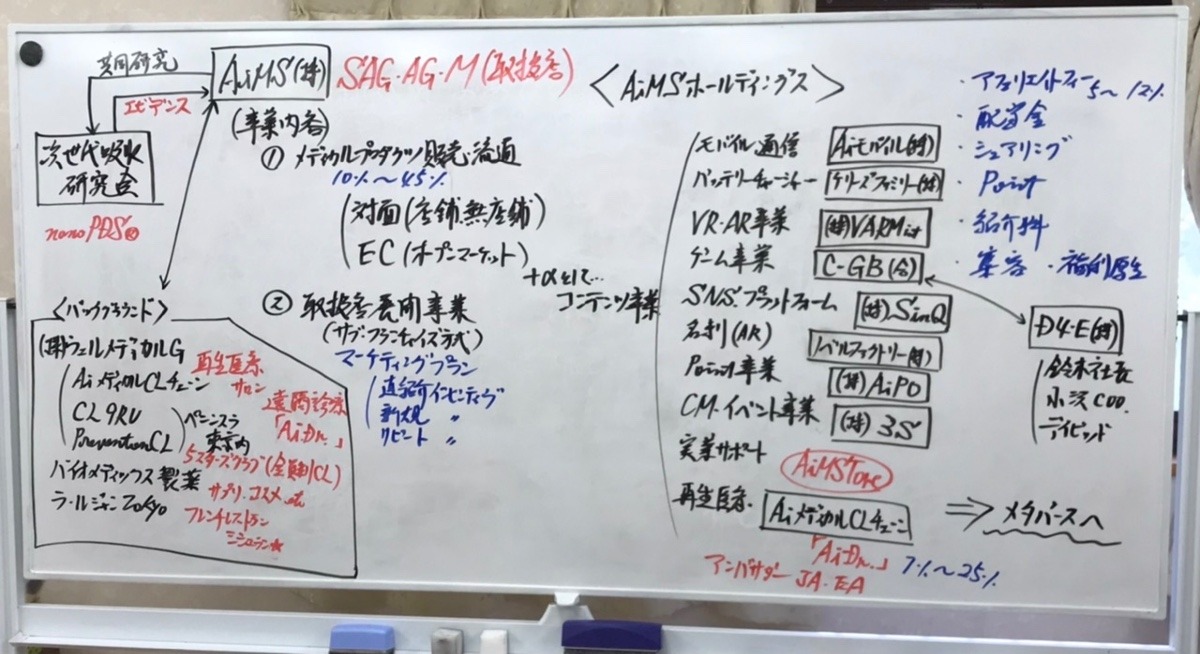 共同研究
エビデンス
次世代吸収
研究会
nanoPDS®
AiMS(株)
SAG・AG・M(取扱店)
(事業内容)
① メディカルプロダクツ販売流通
10%〜45%
対面(店舗、無店舗)
EC(オープンマーケット)
+αとして…
コンテンツ事業
② 取扱店展開事業
(サブ・フランチャイズ方式)
マーケティングプラン
直紹介インセンティブ
新規 〃
リピート 〃
<バックグラウンド>
(株)ウェルメディカルG
再生医療
Aiメディカルクリニック CLチェーン
サロン
遠隔診療
「AiDr.」
CL 9RU
PreventionCL
ペニンスラ
東京内
5スターズクラブ(全員制CL)
バイオメディックス製薬
サプリ・コスメ etc
ラ・ルジャンTokyo
フレンチレストラン
ミシュラン★
<AiMSホールディングス>
モバイル通信 Aiモバイル(株)
バッテリーチャージャー ケリーズファミリー(株)
VR・AR事業 (株)VARMist
ゲーム事業 C-GB(合)
SNS.プラットフォーム (株)SinQ
名刺(AR) ノベルファクトリー(株)
Point事業 (株)AiPO
CM・イベント事業 (株)3S
実業サポート
AiMSTore
再生医療 AiメディカルCLチェーン
「AiDr.」 7%〜25%
アンバサダー JA・EA
・アフィリエイトフィー 5〜12%
・配当金
・シェアリング
・Point
・紹介料
・集客 ・福利厚生
D4-E(株)
鈴木社長
小沢COO.
デイビッド
⇒メタバースへ